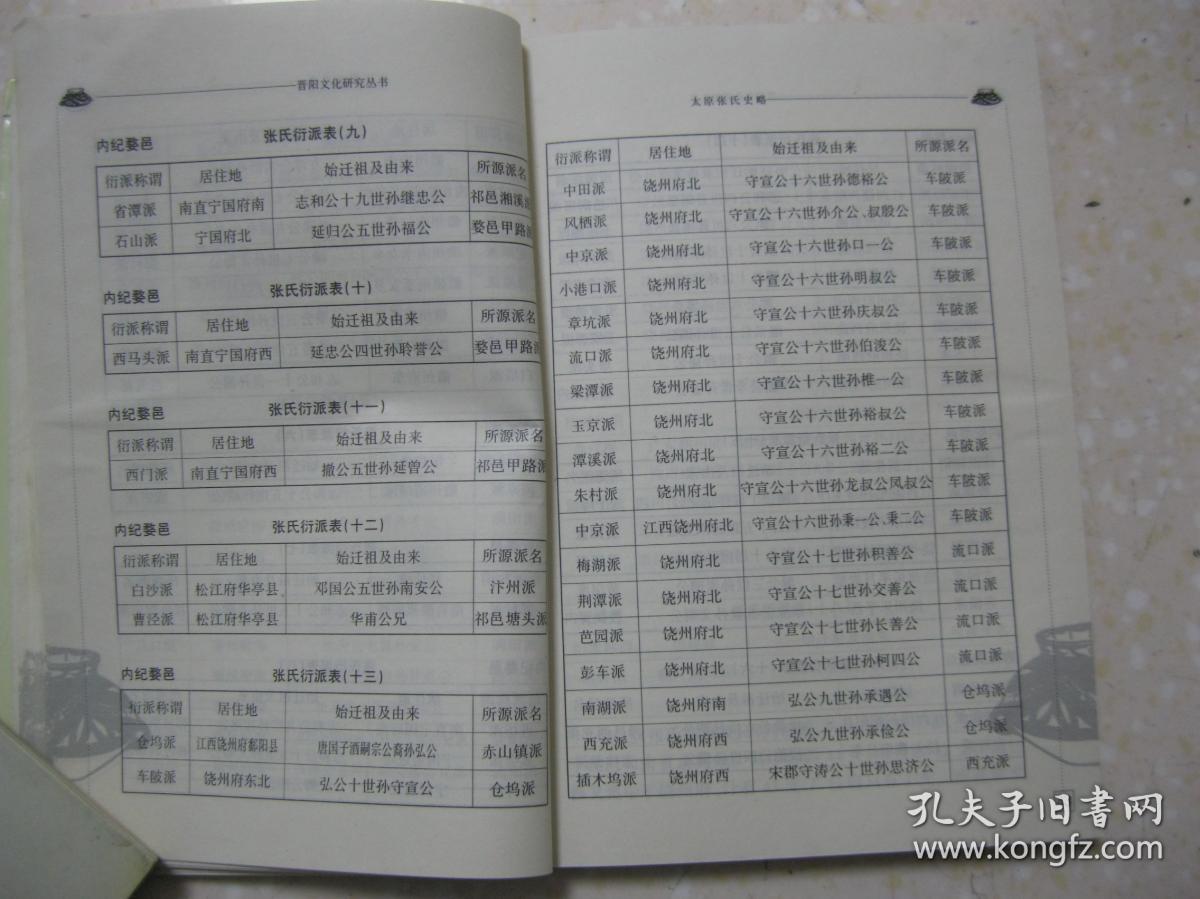 晋阳文化研究丛书
内纪婺邑 张氏衍派表(九)
衍派称谓 居住地 始迁祖及由来 所源派名
省潭派 南直宁国府南 志和公十九世孙继忠公 祁邑湘溪派
石山派 宁国府北 延归公五世孙福公 婺邑甲路派
内纪婺邑 张氏衍派表(十)
衍派称谓 居住地 始迁祖及由来 所源派名
西马头派 南直宁国府西 延忠公四世孙聆誉公 婺邑甲路派
内纪婺邑 张氏衍派表(十一)
衍派称谓 居住地 始迁祖及由来 所源派名
西门派 南直宁国府西 撤公五世孙延曾公 祁邑甲路派
内纪婺邑 张氏衍派表(十二)
衍派称谓 居住地 始迁祖及由来 所源派名
白沙派 松江府华亭县 邓国公五世孙南安公 汴州派
曹泾派 松江府华亭县 华甫公兄 祁邑塘头派
内纪婺邑 张氏衍派表(十三)
衍派称谓 居住地 始迁祖及由来 所源派名
仓坞派 江西饶州府鄱阳县 唐国子酒嗣宗公裔孙弘公 赤山镇派
车陂派 饶州府东北 弘公十世孙守宣公 仓坞派
太原张氏史略
衍派称谓 居住地 始迁祖及由来 所源派名
中田派 饶州府北 守宣公十六世孙德裕公 车陂派
风栖派 饶州府北 守宣公十六世孙介公、叔殷公 车陂派
中京派 饶州府北 守宣公十六世孙口一公 车陂派
小港口派 饶州府北 守宣公十六世孙明叔公 车陂派
章坑派 饶州府北 守宣公十六世孙庆叔公 车陂派
流口派 饶州府北 守宣公十六世孙伯浚公 车陂派
梁潭派 饶州府北 守宣公十六世孙椎一公 车陂派
玉京派 饶州府北 守宣公十六世孙裕叔公 车陂派
潭溪派 饶州府北 守宣公十六世孙裕二公 车陂派
朱村派 饶州府北 守宣公十六世孙龙叔公凤叔公 车陂派
中京派 江西饶州府北 守宣公十六世孙秉一公、秉二公 车陂派
梅湖派 饶州府北 守宣公十七世孙积善公 流口派
荆潭派 饶州府北 守宣公十七世孙交善公 流口派
芭园派 饶州府北 守宣公十七世孙长善公 流口派
彭车派 饶州府北 守宣公十七世孙柯四公 流口派
南湖派 饶州府南 弘公九世孙承遇公 仓坞派
西充派 饶州府西 弘公九世孙承俭公 仓坞派
插木坞派 饶州府西 宋郡守涛公十世孙思济公 西充派
孔夫子旧书网
www.kongfz.com